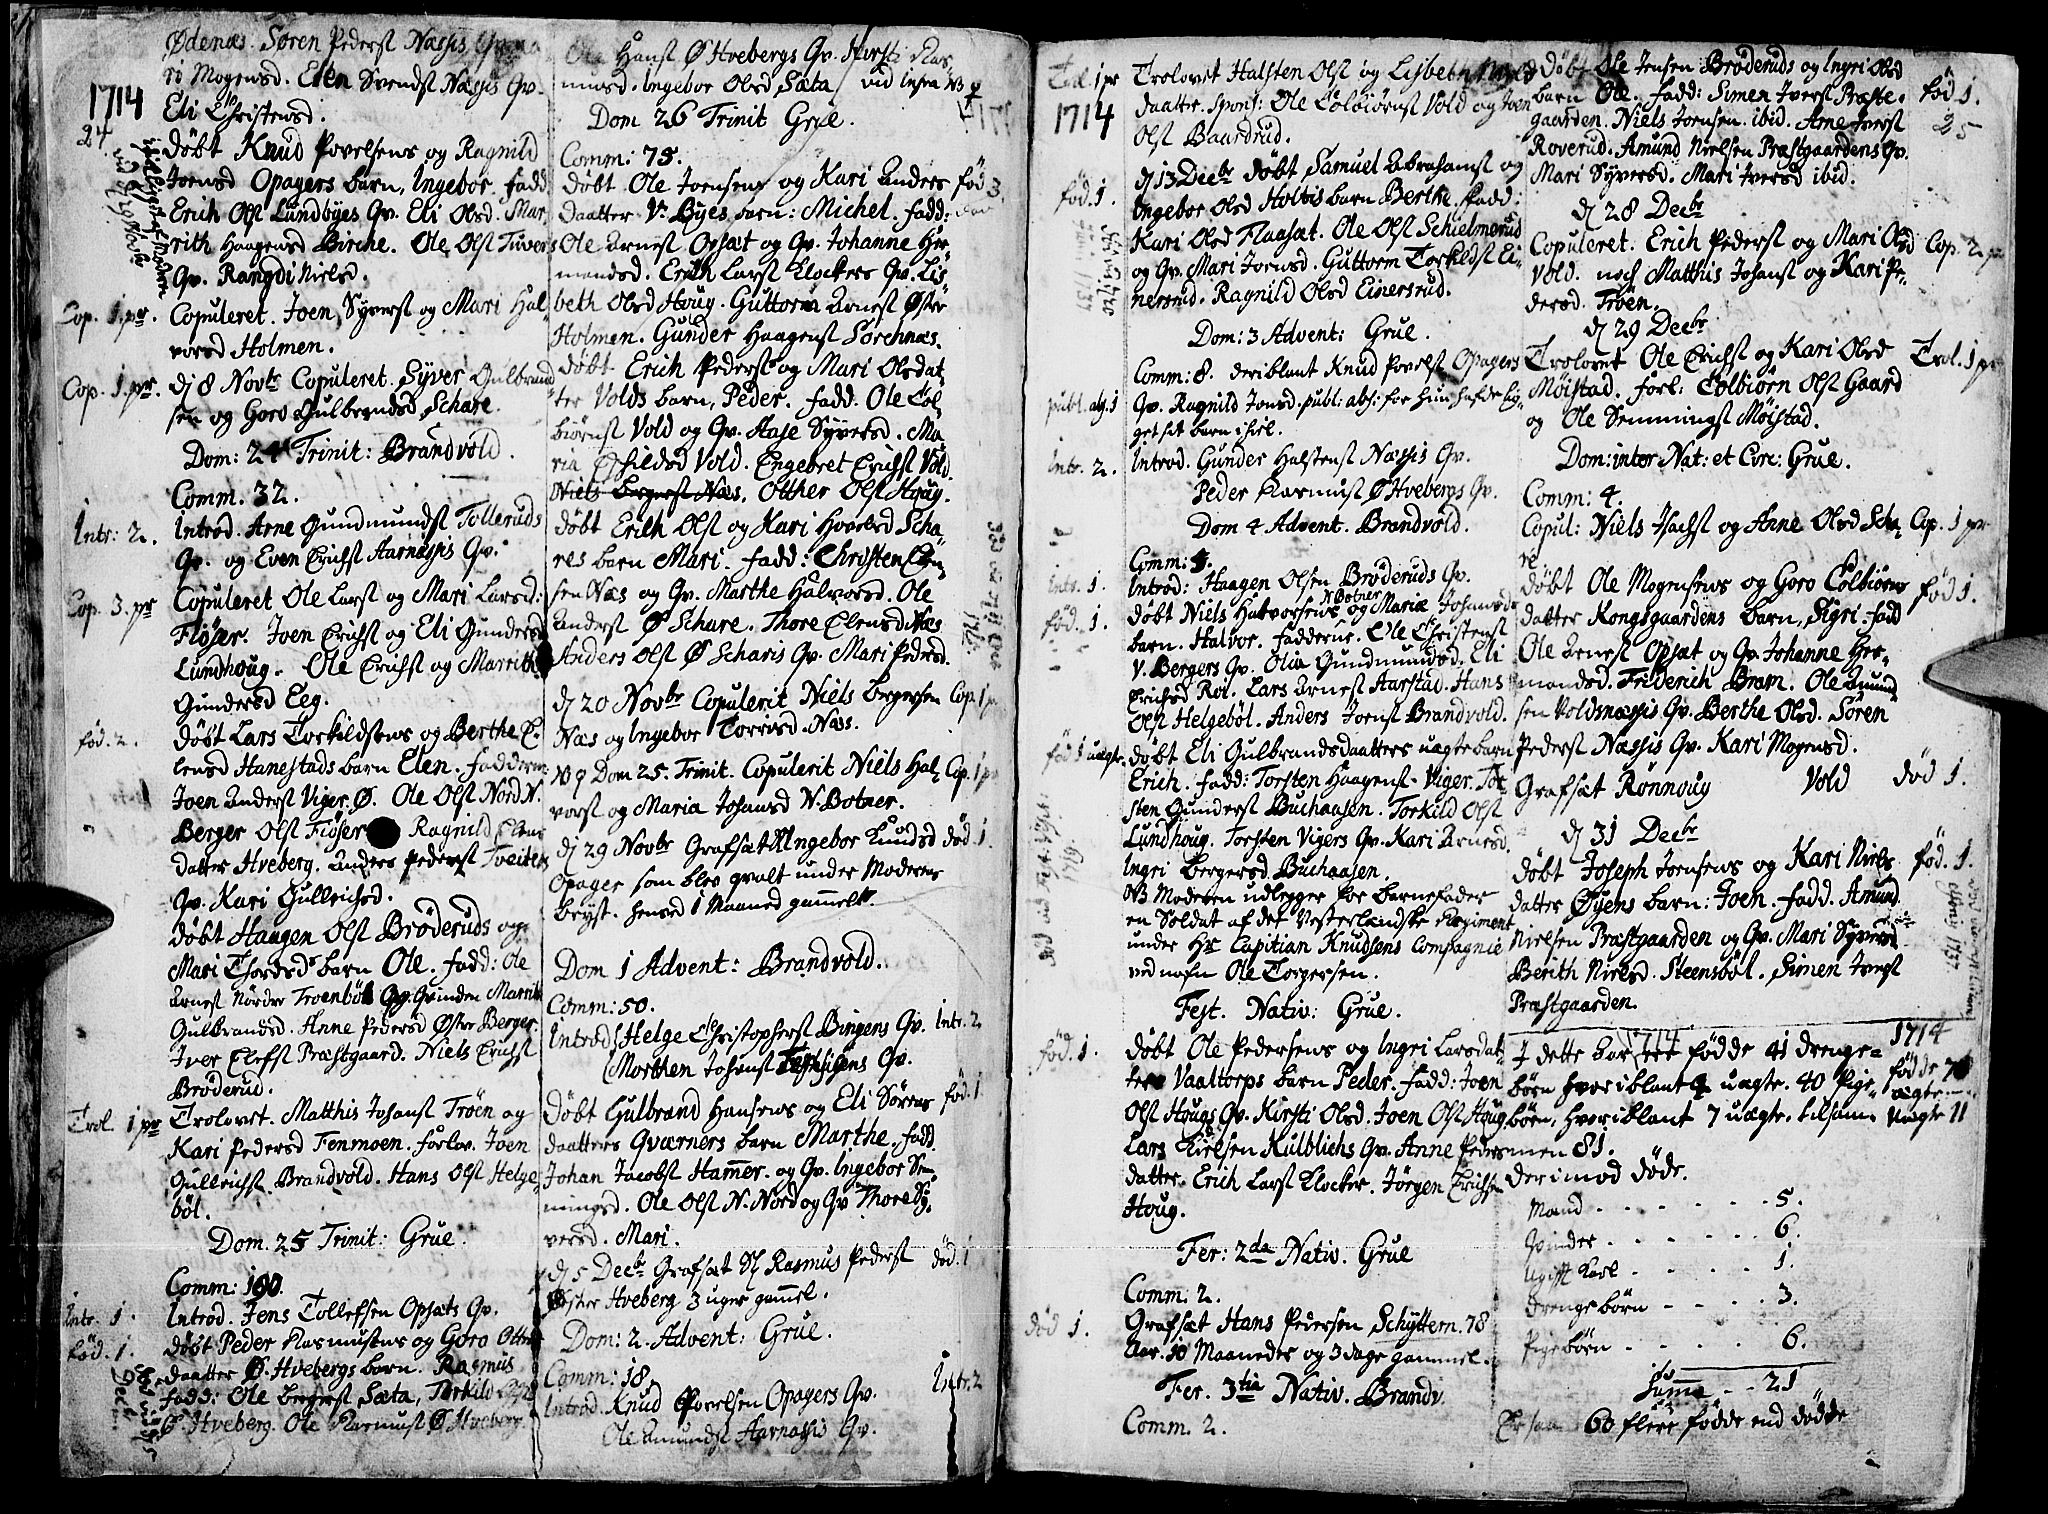 Ødenæs. Søren Pederst Næssis Qv.
ri Mogensd. Elen Svendst Næssis Qv.
1714
Eli Christensd.
24
døbt Knud Povelsens og Ragnild
Joensd Opagers barn, Ingebor. fadd
Erich Olst Lundbyes Qv. Eli Olsd. Mar,
rith Haagensd Birche. Ole Olst Tuvers
Qv. Rangdi Nielsd.
Cop. 1. pr. Copuleret. Joen Syverst og Mari Hal,
vorsd Holmen.
Cop. 1. pr. dj 8 Novbr Copuleret. Syver Gulbrand
sen og Goro Gulbrandsd Schare.
Dom: 24 Trinit: Brandvold.
Comm. 32.
Intr: 2. Introd. Arne Gundmundst Tolleruds
Qv. og Even Erichst Aarnæssis Qv.
Cop. 3. pr Copuleret Ole Larst og Mari Larsd:
Fiøser. Joen Erichst og Eli Gundersd
Lundhoug. Ole Erichst og Marrith
Gundersd Eeg.
fød. 2. døbt Lars Torkildsens og Berthe E,
lensd Hanestads barn Elen. fadderne
Joen Anderst Viger. Ø. Ole Olst Nord N.
Berger Olst Fiøser Ragnild Elens
datter Hveberg. Anders Pederst Tveiters
Qv. Kari Gullrichsd.
døbt Haagen Olst Brøderuds og
Mari Thordsd barn Ole. fadd: Ole
Arnest Nordre Troenbøl Qvinden Marrith
Gulbrandsd. Anne Pedersd Øster Berger.
Iver Elefst Præstgaard. Niels Erichst
Brøderud.
Trol. 1 pr Trolovet. Matthis Johanst Trøen og
Kari Pedersd Tenmoen. forlov. Joen
Gullrichst Brandvold. Hans Olst Helge,
bøl.
Dom. 25 Trinit: Grue.
Comm: 100.
Intr. 1. Introd. Jens Tollefsen Opsæts Qv.
fød. 1. døbt Peder Rasmusens og Goro Otters
daatter Ø. Hvebergs barn. Rasmus
fadd: Ole bergerst Sæta, Torkild
Ø. Hveberg. Ole Rasmust Ø Hveberg.
Ole Hanst Ø Hvebergs Qv. Kersti Ras,
musd. Ingebor Olsd Sæta vid infra NB
Dom 26 Trinit Grue.
Comm: 75.
døbt Ole Joensens og Kari Anders fød 3.
daatter V. Byes barn: Michel. fadd:
Ole Arnest Opsæt og Qv. Johanne Her
mandsd. Erich Larst Klockers Qv. Lis,
beth Olsd Houg. Guttorm Arnest Øster
Holmen. Gunder Haagenst Sorchnæs.
døbt Erich Pederst og Mari Olsdat,
ter Volds barn, Peder. fadd. Ole Col,
biørnst Vold og Qv. Aase Syversd. Ma,
ria Eskildsd Vold. Engebret Erichst Vold
Niels bergerst Næs. Otther Olst Houg.
døbt Erich Olst og Kari Hovelsd Scha,
res barn Mari. fadd: Christen Elen,
sen Næs og Qv. Marthe Halvorsd. Ole
Anderst Ø Schare. Thore Elensd Næs
Anders Olst Ø Scharis Qv. Mari Pedersd.
dj 20 Novbr Copulerit Niels bergersen Cop. 1 p
Næs og Ingebor Torrisd. Næs.
NB Dom 25. Trinit. Copulerit Niels Hal, Cop. 1 pr
vorst og Maria Johansd N. Botner.
dj 29 Novbr Grafsæt Ingebor Knudsd død 1.
Opager som blev qvalt under Moderens
bryst. hensed 1 Maaned gammel.
Dom 1 Advent: Brandvold.
Comm: 50.
Introd Helge Christopherst Bingens Qv. Intr. 2
Morthen Johanst Qv.
døbt Gulbrand Hansens og Eli Sørens fød. 1.
daatters Qværners barn Marthe. fadd.
Johan Jacobst Hammer. og Qv. Ingebor Sem,
mingsd. Ole Olst N. Nord og Qv Thore Sy,
versd. Mari.
dj 5 Decbr Grafsæt Rasmus Pederst død. 1
Øster Hveberg 3 uger gammel.
Dom: 2. Advent: Grue.
Comm: 18.
Introd. Knud Povelsen Opagers Qv. Intr. 2
Ole Amundst Aarnæssis Qv.
1 pr Trolovet Halsten Olst og Lisbeth
1714
daatter. spons: Ole Colbiørnst Vold og Joen
Olst Baardrud.
fød. 1. dj 13 Decbr døbt Samuel Abrahamst og
Ingebor Olsd Holtis barn Berthe. fadd:
Kari Olsd Flaasæt. Ole Olst Schielmerud
og Qv. Mari Joensd. Guttorm Torkildst Ei,
nersrud. Ragnild Olsd Einersrud.
Dom: 3 Advent: Grue.
Comm: 8. deriblant Knud Povelst Opagers
publ. abs. 1 Qv. Ragnild Jonsd. publ: abs: for hun hafde lig,
get sit barn ihiel.
Intr. 2. Introd. Gunder Halstenst Næssis Qv.
Peder Rasmust Ø Hvebergs Qv.
Dom 4 Advent. Brandvold.
Comm: 4.
Intr. 1. Introd: Haagen Olsen Brøderuds Qv.
N. Botner
fød. 1. døbt Niels Halvorsens og Mariæ Johansd
barn. Halvor. fadderne. Ole Christenst
V. Bergers Qv. Olia Gundmundsd. Eli
Erichsd Rot. Lars Arnest Aarstad. Hans
Olst Helgebøl. Anders Joenst Brandvold.
fød 1 uægte. døbt Eli Gulbrandsdaatters uægte barn
Erich. fadd: Torsten Haagenst Viger. Tor
sten Gunderst Buchaasen. Torkild Olst
Lundhoug. Torsten Vigers Qv. Kari Arnesd.
Ingri Bergersd Buchaasen.
NB Moderen udlegger for barnefader
en Soldat af det Vesterlendske Regiment
under Hr Capitian Knudsens Compagnie
ved nafn Ole Torgersen.
Fest. Nativ: Grue.
fød. 1. døbt Ole Pedersens og Ingri Larsdat,
ters Vaaltorps barn Peder. fadd: Joen
Olst Hougs Qv. Kirsti Olsd. Joen Olst Houg
Lars Kielsen Kulblichs Qv. Anne Peders
datter. Erich Larst Klocker. Jørgen Erichsen
Houg.
Fer: 2da Nativ. Grue
Comm. 2.
død 1. Grafsæt Hans Pedersen Schyttern. 78
Aar. 10 Maaneder og 3 dage gammel.
Fer. 3tia Nativ. Brandv.
Comm. 2.
døbt Ole Jensen Brøderuds og Ingri Olsd
barn Ole. fadd: Simen Iverst Præste, fød 1.
gaarden. Niels Jensen. ibid. Arne Iverst 25
Roverud. Amund Nielsen Præstgaardens Qv.
Mari Syversd. Mari Iversd ibid.
dj 28 Decbr
Copuleret. Erich Pederst og Mari Olsd Cop. 2. pr
Vold. noch Matthis Johanst og Kari Pe,
dersd. Trøen.
dj 29 Decbr
Trolovet Ole Erichst og Kari Olsd Trol. 1 pr
Møistad. forl: Colbiørn Olst Gaard
og Ole Semmingst Møistad.
Dom: inter Nat: et Circ: Grue.
Comm: 4.
Copul: Niels Isachst og Anne Olsd Scha, Cop. 1 pr
re
døbt Ole Mogensens og Goro Colbiørns fød 1.
datter Kongsgaardens barn, Sigri. fadd
Ole Arnest Opsæt og Qv. Johanne Her,
mandsd. Friderich Bram. Ole Amund,
sen Voldsnæssis Qv. Berthe Olsd. Søren
Pederst Næssis Qv. Kari Mogensd.
Grafsæt Rønnoug Vold død 1.
dj 31 Decbr
døbt Joseph Joensens og Kari Niels fød. 1.
datter Øyens barn: Joen. fadd. Amund
Nielsen Præstgaarden og Qv. Mari Syversd
Berith Nielsd. Steensbøl. Simen Iverst
Præstgaarden.
1714 1714
I dette Aar ere fødde 41 drenge= fødde 70
børn hvor iblant 4 uægte. 40 Pige, ægte
børn, hvor iblant 7 uægte. tilsam= Uægte 11
men 81.
derimod døde.
Mænd . . . . 5.
Qvinder . . . . 6.
Ugift Karl . . . . 1.
drenge børn . . . . 3.
Pige børn . . . . 6.
Summa . . 21
Er saa 60 flere fødde end dødde